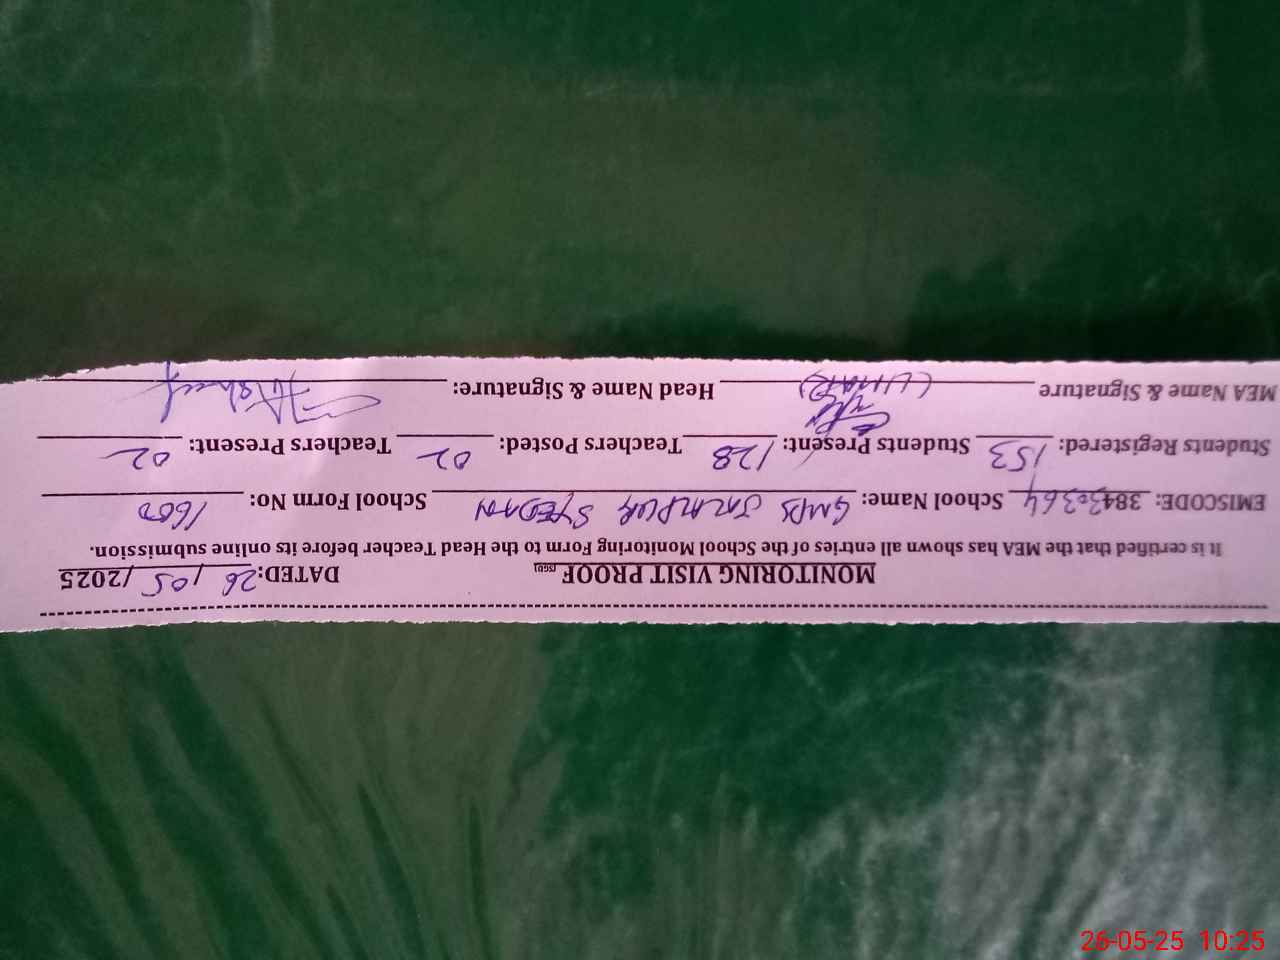 MONITORING VISIT PROOF DATED: 26/05/2025
It is certified that the MEA has shown all entries of the School Monitoring Form to the Head Teacher before its online submission.
EMISCODE: 38430364 School Name: GMPS JALALPUR SYEDAN School Form No: 1600
Students Registered: 153 Students Present: 128 Teachers Posted: 02 Teachers Present: 02
MEA Name & Signature (UMAR) Head Name & Signature:
26-05-25 10:25